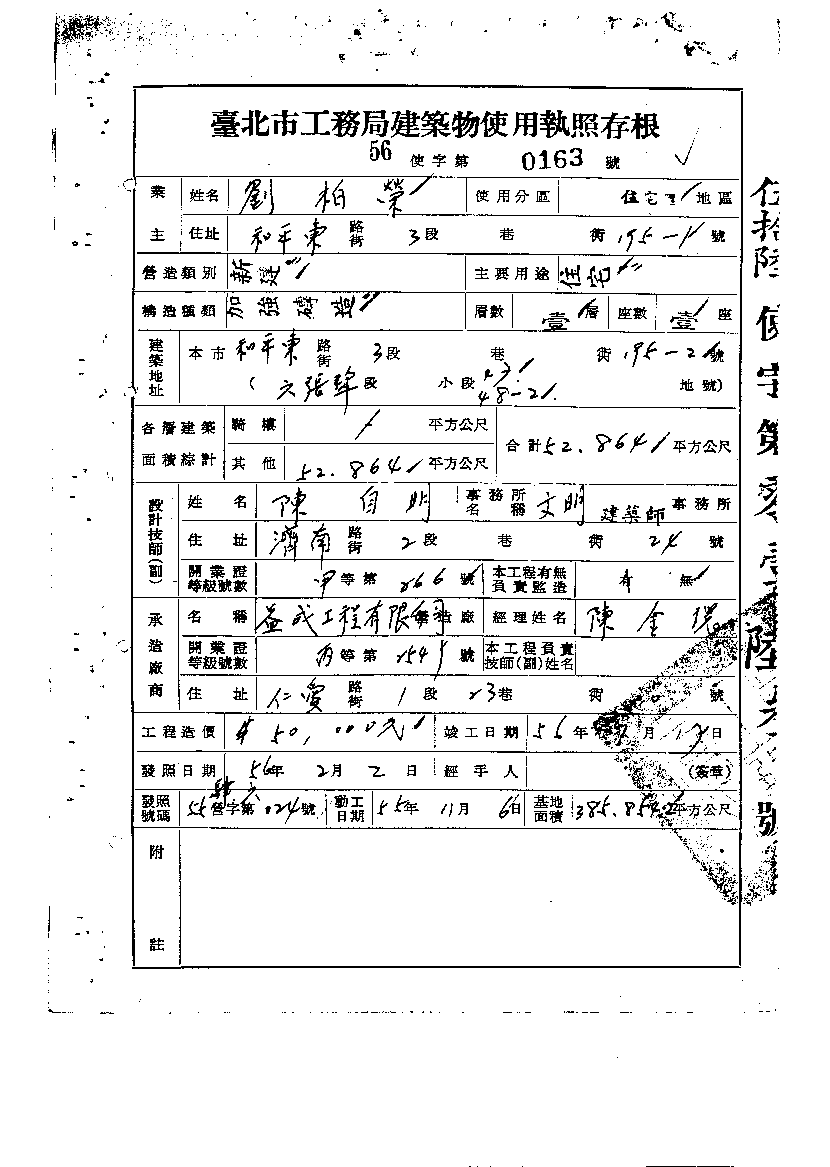 臺北市工務局建築物使用執照存根
56 使字第 0163 號
業主 姓名 劉柏榮 使用分區 住宅 地區
住址 和平東 路街 3段 巷 街 195-1 號
營造類別 新建 主要用途 住宅
構造種類 加強磚造 層數 壹層 座數 壹座
建築地址 本市 和平東 路街 3段 巷 街 195-2 號
(六張犂段 小段 48-21 地號)
各層建築面積綜計 騎樓 平方公尺 合計 52.864 平方公尺
其他 52.864 平方公尺
設計技師(副) 姓名 陳自明 事務所名稱 文明 建築師 事務所
住址 濟南 路街 2段 巷 街 24 號
開業證等級號數 甲等第 266 號 本工程有無負責監造 有 無
承造廠商 名稱 益成工程有限公司 營造廠 經理姓名 陳金
開業證等級號數 丙等第 254 號 本工程負責技師(副)姓名
住址 仁愛 路街 1段 23巷 街 號
工程造價 $50,000元 竣工日期 56年 月 日
發照日期 56年 2月 2日 經手人 (簽章)
發照號碼 55營字第 024 號 動工日期 55年 11月 6日 基地面積 385.854 平方公尺
附註
伍拾陸使字第零壹陸 號